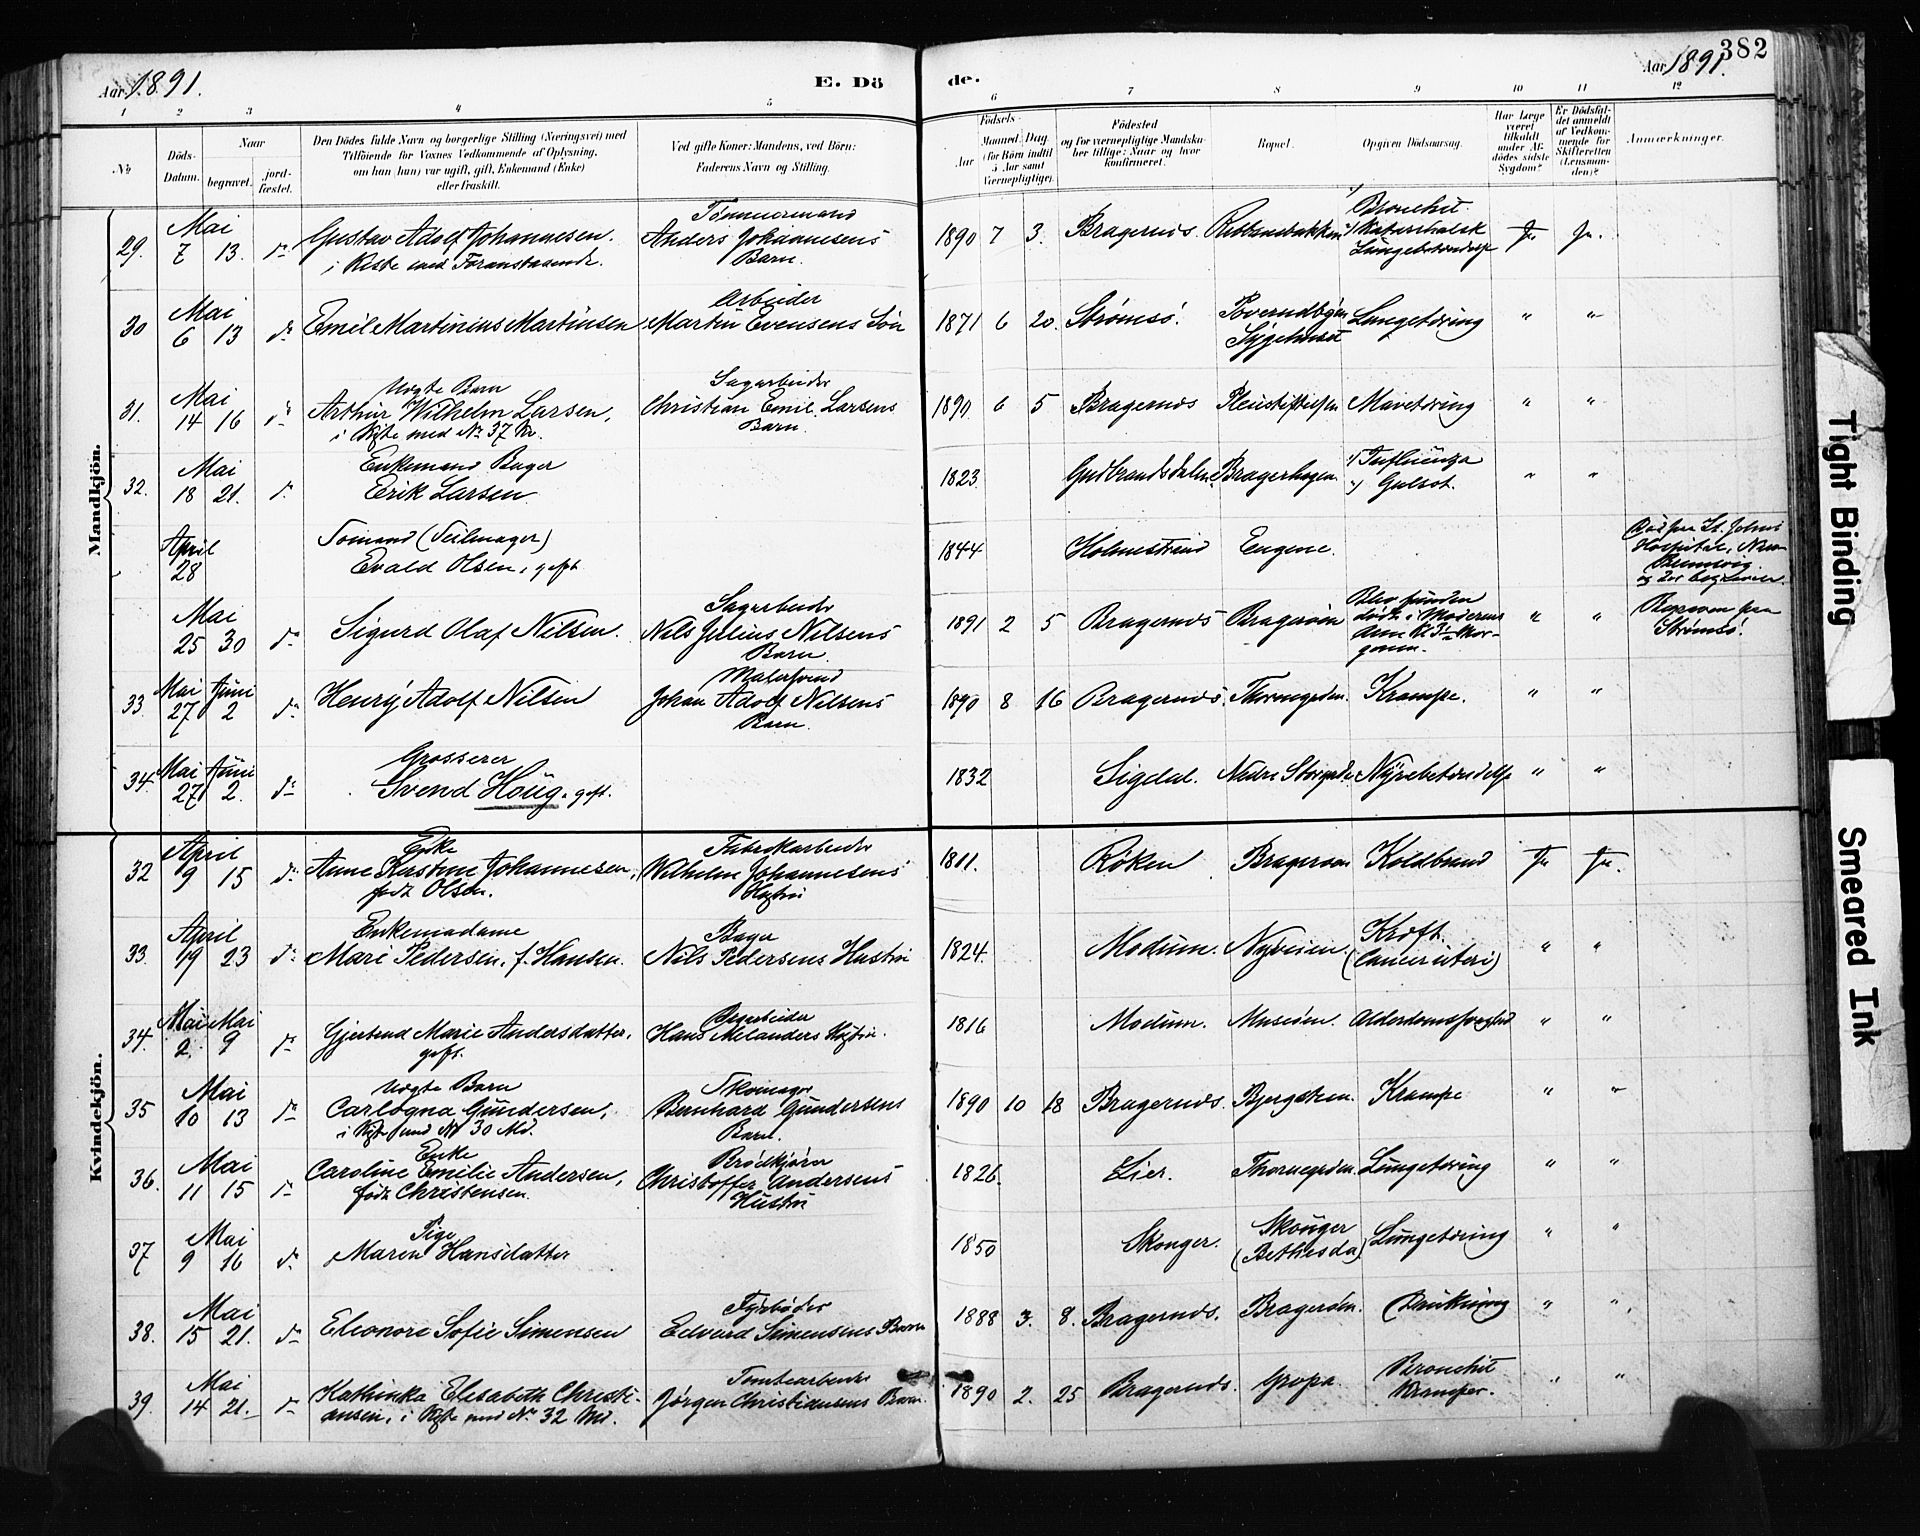 382
Aar 1891.
E. Dö
de.
Aar 1891.
1 2 3 4 5 6 7 8 9 10 11 12
No.
Döds-Datum.
Naar
begravet.
jord-fæstet.
Den Dödes fulde Navn og borgerlige Stilling (Næringsvei) med
Tilföiende for Voxnes Vedkommende af Oplysning,
om han (hun) var ugift, gift, Enkemand (Enke)
eller fraskilt.
Ved gifte Koner: Mandens, ved Börn:
Faderens Navn og Stilling.
Födsels-
Aar
Maaned (for Börn indtil 5 Aar samt Værnepligtige).
Dag
Födested
og for værnepligtige Mandska-
ber tillige: Naar og hvor
konfirmeret.
Bopæl.
Opgiven Dödsaarsag.
Har Læge været tilkaldt under Afdödes sidste Sygdom?
Er Dödsfaldet anmeldt af Vedkommende for Skifteretten (Lensmanden)?
Anmærkninger.
Mandkjön.
29. Mai 7 13. do Gustav Adolf Johannesen. i Kiste med Foranstaaende. Tømmermand Anders Johannesens Barn. 1890 7 3. Bragernds. Bronchit. Katarrhalsk Lungebetændelse Ja Ja.
30 Mai 6 13 do Emil Martinius Martinsen Arbeider Martin Evensens Søn 1871 6 20. Strømsø. Sygehuset Lungetæring " "
31. Mai 14 16 do Uægte Barn Arthur Wilhelm Larsen, i Kiste med No 37 Kv. Sagarbeider Christian Emil Larsens Barn. 1890 6 5 Bragernds Pleiestiftelsen Mavetæring " "
32. Mai 18 21. do Enkemand Bager Erik Larsen 1823. Gudbrandsdalen Bragerhagen. 1) Influenza 2) Gulsot. " "
April 28 Tomand (Seilmager) Evald Olsen, gift 1844 Holmestrand Eugene. Hospital
Mai 25 30 do Sigurd Olaf Nilsen. Sagarbeider Nils Julius Nilsens Barn. 1891 2 5 Bragernds Bragerøen Blev funden død i Moderens Arm Kl. 3½ Morgenen. " " Strømsø.
33 Mai 27 Juni 2 do Henry Adolf Nilsen Malersvend Johan Adolf Nilsens Barn. 1890 8 16 Bragernds. Thornegaden. Krampe. " "
34. Mai 27 Juni 2. do Grosserer Svend Houg. gift. 1832 Sigdal. Nedre Storgade Nyrebetændelse " "
Kvindekjön.
32 April 9 15 do Enke Anne Kirstine Johannesen, født Olsen. Fabrikarbeider Wilhelm Johannesens Hustru 1811. Røken Bragerøen Koldbrand Ja Ja.
33. April 19 23 do Enkemadame Mari Pedersen, f. Hansen. Bager Nils Pedersens Hustru 1824. Modum. Nyveien. Kræft (Cancer uteri) " "
34. Mai 2. Mai 9 do Gjertrud Marie Andersdatter, gift. Hans Melanders Hustru. 1816 Modum. Museøen. Alderdomssvaghed " "
35 Mai 10 13 do Uægte Barn Carlogna Gundersen, i Kiste med No 30 Md. Skomager Bernhard Gundersens Barn. 1890 10 18 Bragernds. Bjergstien. Krampe " "
36. Mai 11 15 do Enke Caroline Emilie Andersen, født Christensen. Brødkjører Christoffer Andersens Hustru 1826. Lier. Thornegaden. Lungetæring " "
37 Mai 9 16 do Pige Maren Hansdatter 1850 Skouger. Skouger (Bethesda) Lungetæring " "
38. Mai 15 21. do Eleonore Sofie Simensen Fyrbøder Edvard Simensens Barn 1888 3. 8. Bragernds. Bragerøen. Drukning " "
39. Mai 14 21. do Kathinka Elisabeth Christiansen, i Kiste med No 32 Md. Tomtearbeider Jørgen Christiansens Barn. 1890 2. 25 Bragernds. Gropa. Bronchit Kramper. " "
Tight Binding
Smeared Ink